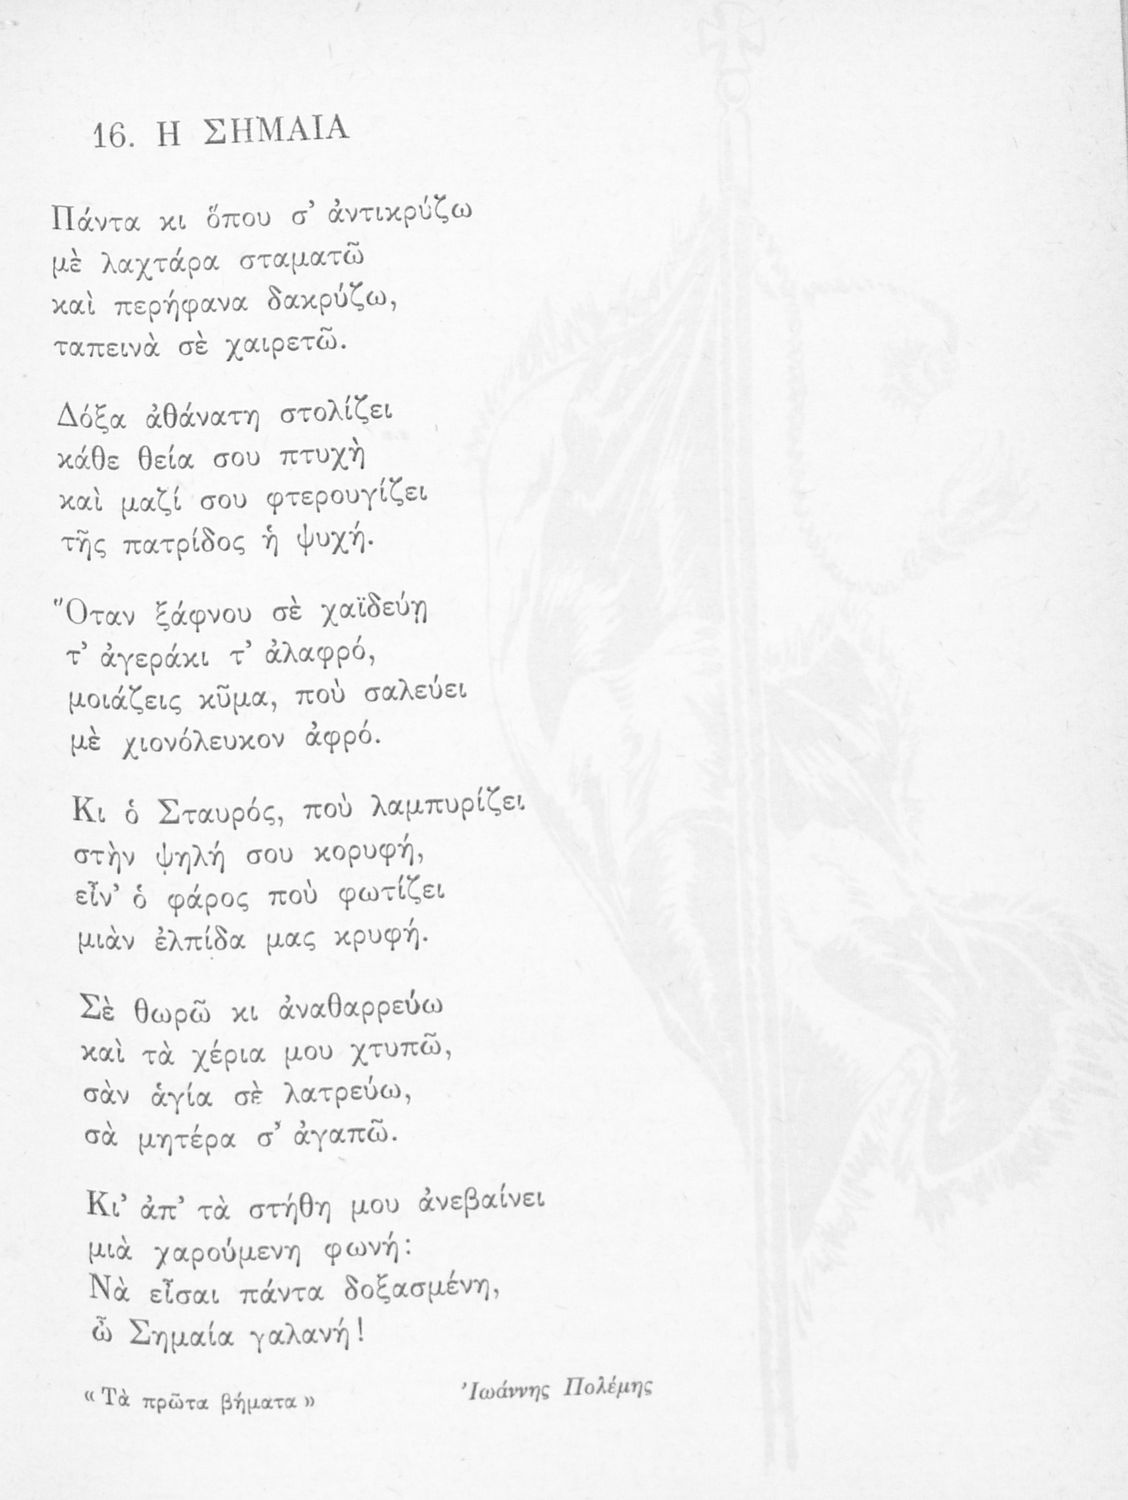 16. Η ΣΗΜΑΙΑ
Πάντα κι ὅπου σ’ ἀντικρύζω
μὲ λαχτάρα σταματῶ
καὶ περήφανα δακρύζω,
ταπεινὰ σὲ χαιρετῶ.
Δόξα ἀθάνατη στολίζει
κάθε θεία σου πτυχὴ
καὶ μαζί σου φτερουγίζει
τῆς πατρίδος ἡ ψυχή.
Ὅταν ξάφνου σὲ χαϊδεύῃ
τ’ ἀγεράκι τ’ ἀλαφρό,
μοιάζεις κῦμα, ποὺ σαλεύει
μὲ χιονόλευκον ἀφρό.
Κι ὁ Σταυρός, ποὺ λαμπυρίζει
στὴν ψηλή σου κορυφή,
εἶν’ ὁ φάρος ποὺ φωτίζει
μιὰν ἐλπίδα μας κρυφή.
Σὲ θωρῶ κι ἀναθαρρεύω
καὶ τὰ χέρια μου χτυπῶ,
σὰν ἁγία σὲ λατρεύω,
σὰ μητέρα σ’ ἀγαπῶ.
Κι’ ἀπ’ τὰ στήθη μου ἀνεβαίνει
μιὰ χαρούμενη φωνή:
Νὰ εἶσαι πάντα δοξασμένη,
ὦ Σημαία γαλανή!
«Τὰ πρῶτα βήματα» Ἰωάννης Πολέμης